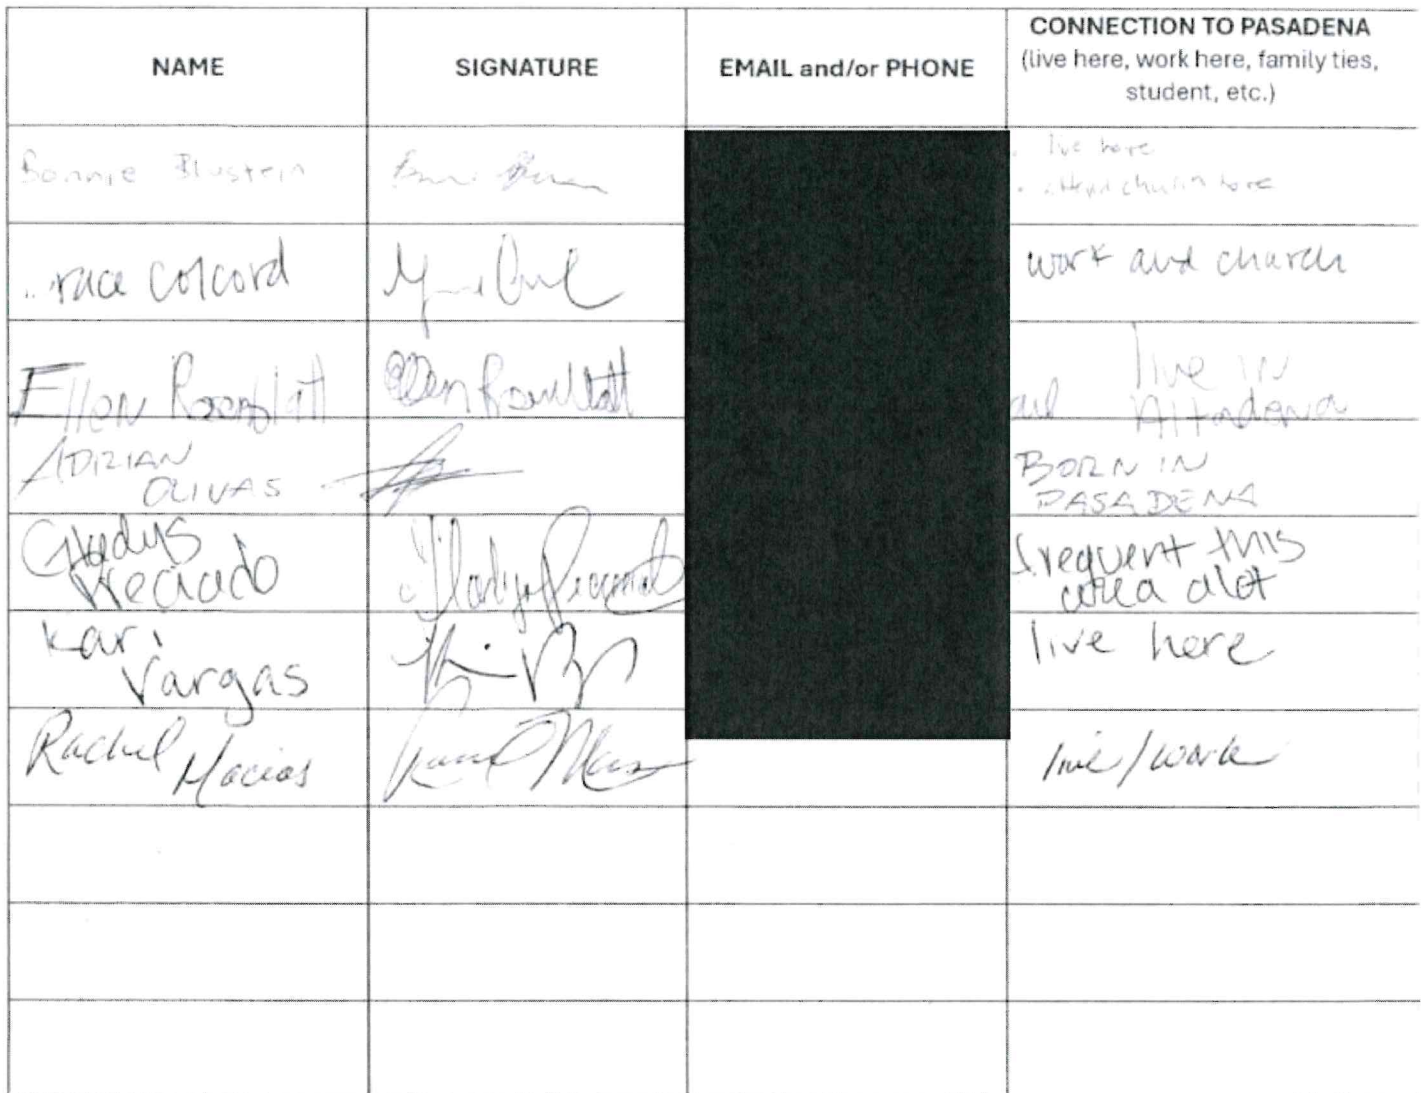 NAME
SIGNATURE
EMAIL and/or PHONE
CONNECTION TO PASADENA
(live here, work here, family ties,
student, etc.)
Bonnie Blustein
live here
attend church here
race Colcord
work and church
Ellen Rosenblatt
Ellen Rosenblatt
live in
Altadena
ADRIAN
OLIVAS
BORN IN
PASADENA
Gladys
Preciado
Gladys Preciado
frequent this
area alot
Kari
Vargas
live here
Rachel Macias
live/work